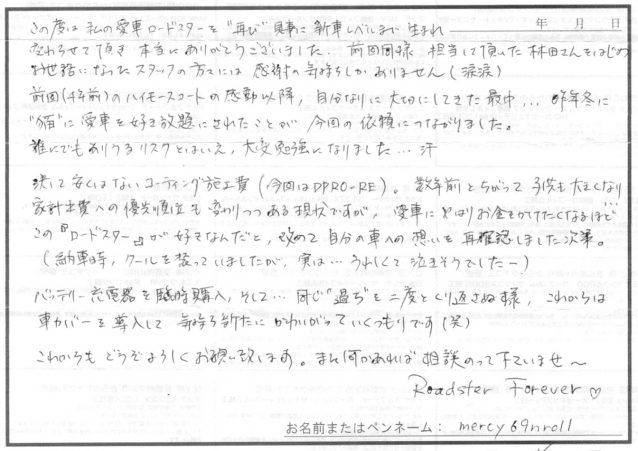 年 月 日
この度は私の愛車ロードスターを"再び"見事に新車レベルにまで生まれ
変わらせて頂き本当にありがとうございました… 前回同様、担当して頂いた林田さんをはじめ
お世話になったスタッフの方々には感謝の気持ちしかありません(涙涙)
前回(4年前)のハイモースコートの感動以降、自分なりに大切にしてきた最中… 昨年冬に
"猫"に愛車を好き放題にされたことが今回の依頼につながりました。
誰にでもありうるリスクとはいえ、大変勉強になりました…汗
決して安くはないコーティング施工費(今回はDPRO-RE)。数年前とちがって子供も大きくなり
家計出費への優先順位も変わりつつある現状ですが、愛車にやはりお金をかけたくなるほど
この『ロードスター』が好きなんだと、改めて自分の車への想いを再確認しました次第。
(納車時、クールを装っていましたが、実は…うれしくて泣きそうでしたー)
バッテリー充電器を臨時購入、そして…同じ"過ち"を二度とくり返さぬ様、これからは
車カバーを導入して気持ち新たにかわいがっていくつもりです(笑)
これからもどうぞよろしくお願い致します。また何かあれば相談のって下さいませ〜
Roadster Forever♡
お名前またはペンネーム: mercy69nroll